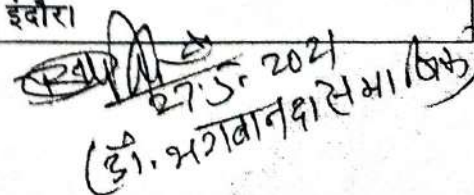 इंदौरा
27.5.2021
(डॉ. भगवानदास माणिक)